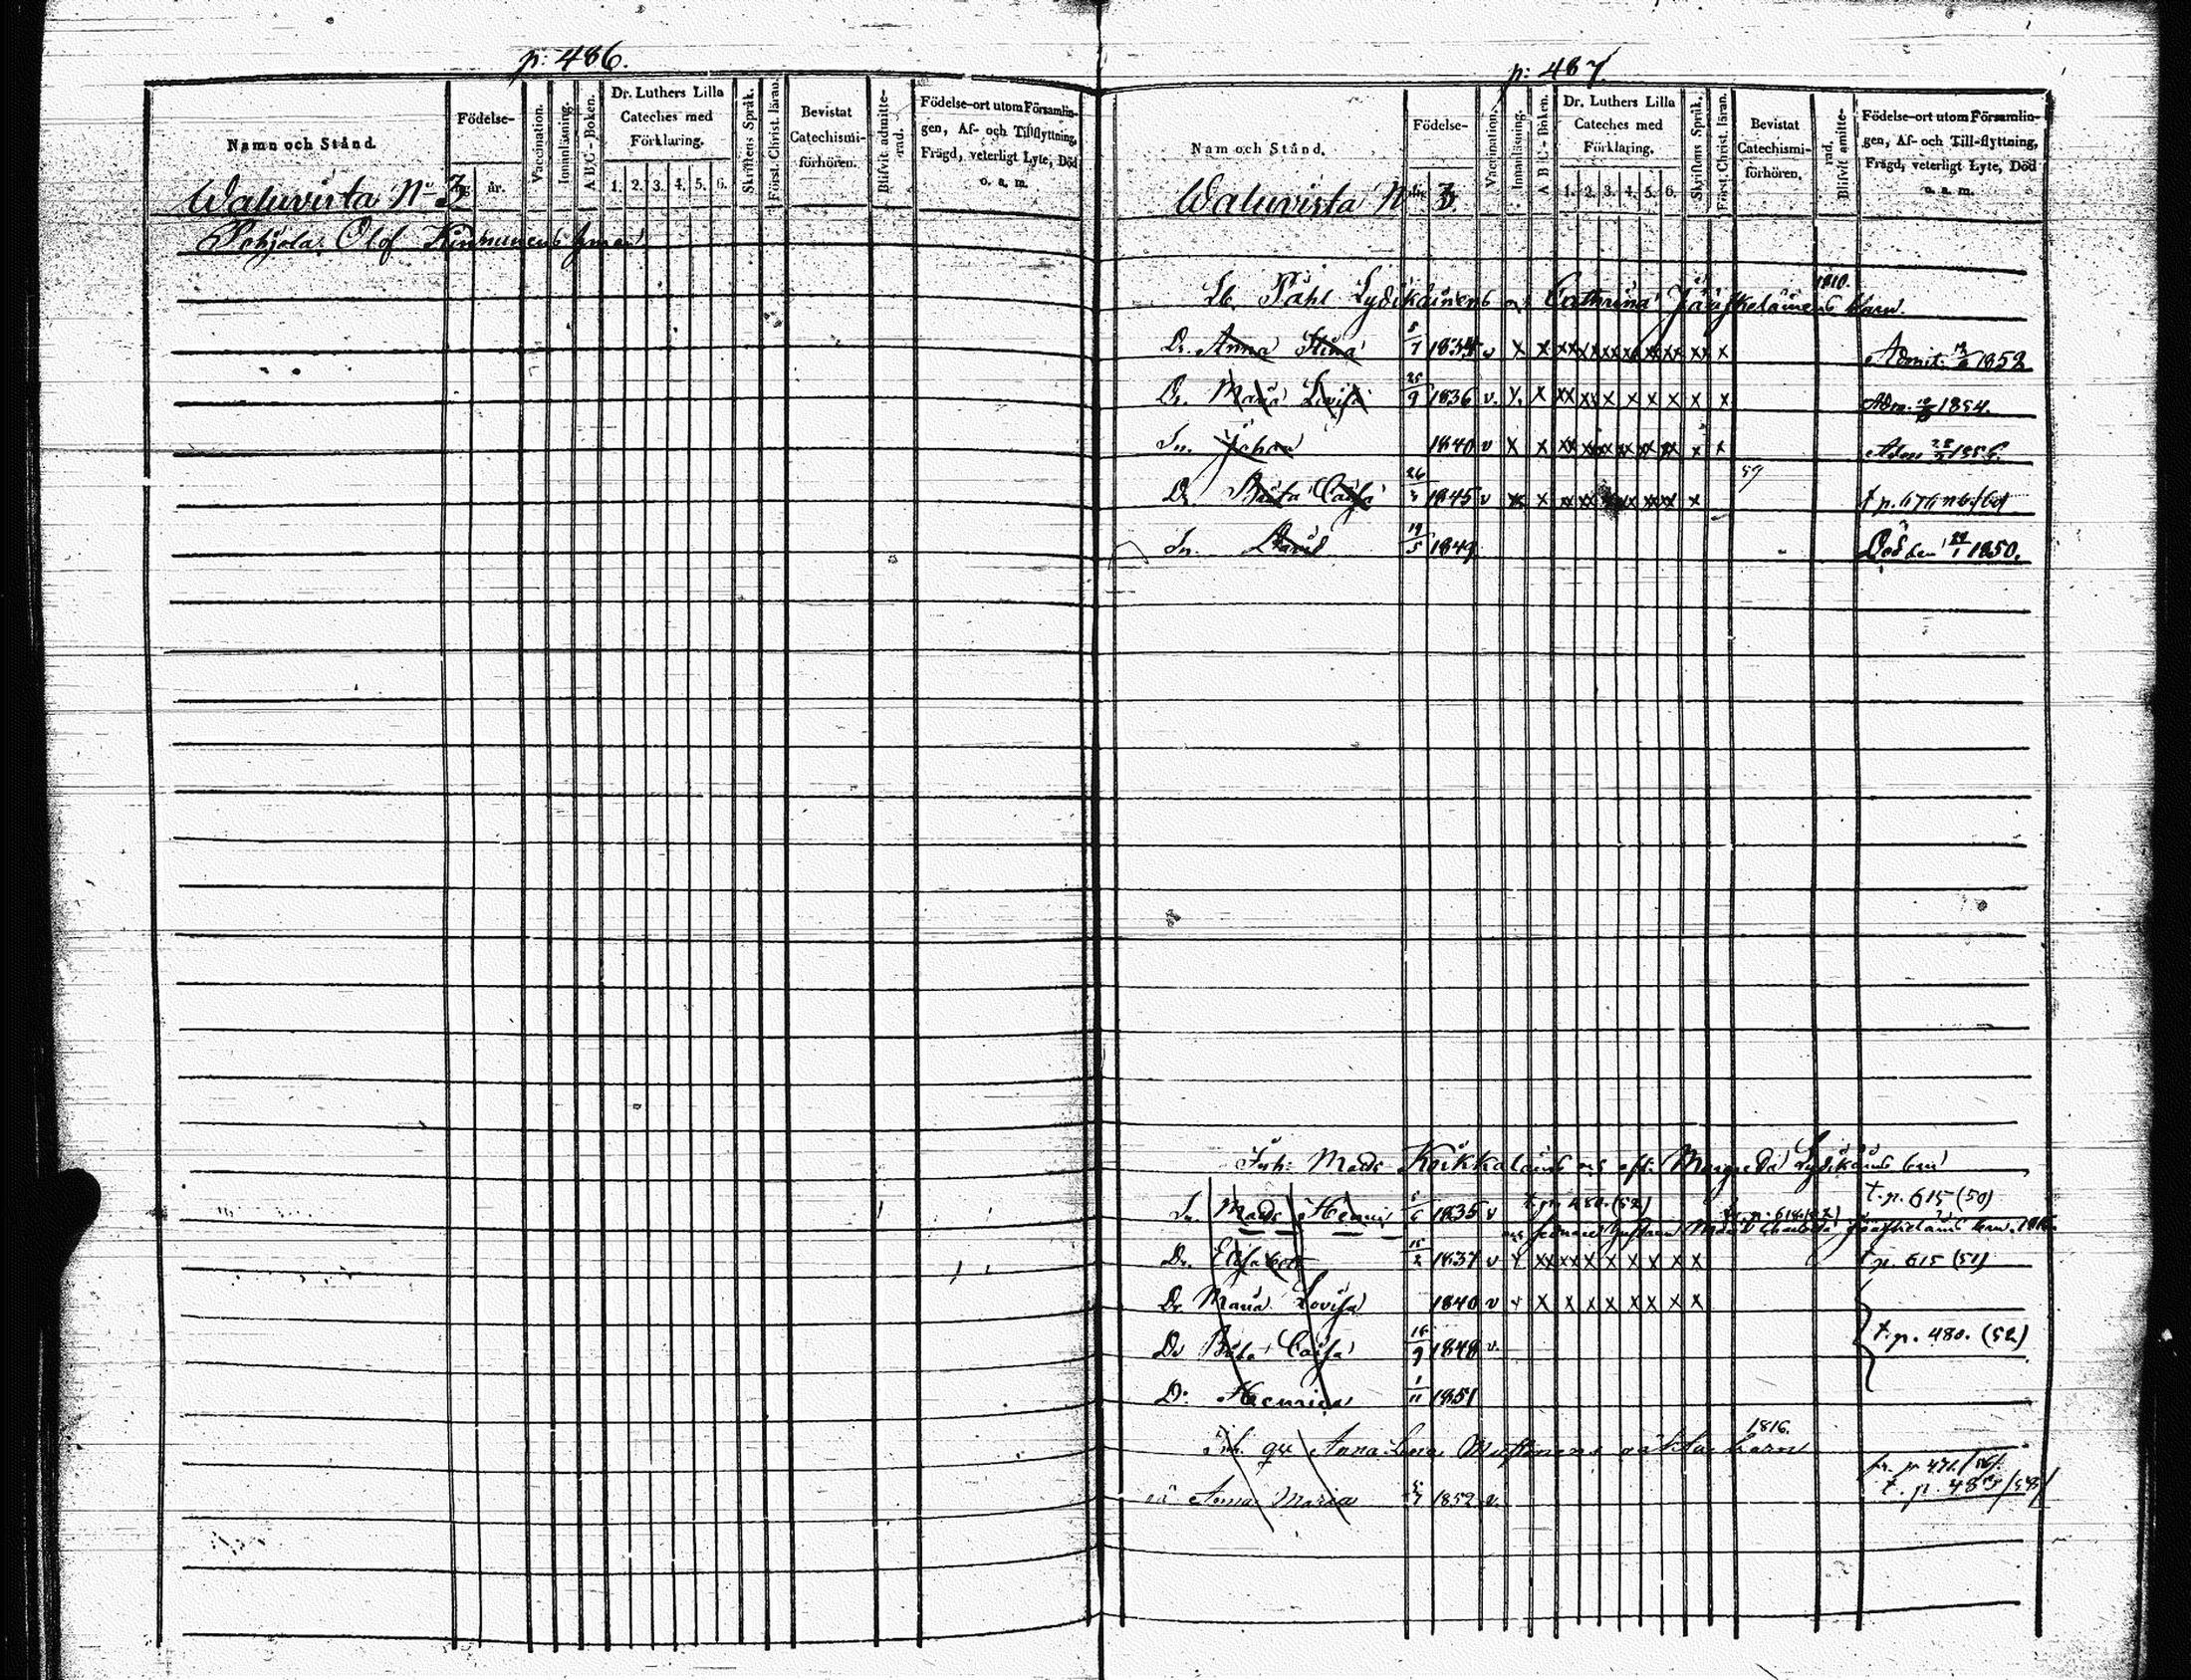 p: 486.
Namn och Stånd.
Födelse-
år.
Vaccination.
Innanläsning.
A B C-Boken.
Dr. Luthers Lilla Cateches med Förklaring.
1. 2. 3. 4. 5. 6.
Skriftens Språk.
Först. Christ. läran.
Bevistat Catechismi-förhören.
Blifvit admitte-rad.
Födelse-ort utom Församlin-gen, Af- och Tillflyttning, Frägd, veterligt Lyte, Död o. a. m.
Waluvirsta No 3.
Pohjola: Olof Kinnunens hman
p: 487.
Namn och Stånd.
Födelse-
Vaccination.
Innanläsning.
A B C-Boken.
Dr. Luthers Lilla Cateches med Förklaring.
1. 2. 3. 4. 5. 6.
Skriftens Språk.
Först. Christ. läran.
Bevistat Catechismi-förhören.
Blifvit admitte-rad.
Födelse-ort utom Församlin-gen, Af- och Till-flyttning, Frägd, veterligt Lyte, Död o. a. m.
Waluvirsta No 3.
Påhl Lydikäinens Cathrina Jääskeläinens barn. 1810.
Dr. Anna Stina 8/7 1834 v x x xx xx xx xx xx xx xx x Admit. 1852.
Dr. Maria Lovisa 25/9 1836 v. x x xx xx x x x x x x Adm. 1854.
Sn. Johan 1840 v x x xx xx xx xx xx xx x x Adm 1856.
Dr. Brita Caisa 26/3 1845 v x x xx xx xx xx xx x 59 t p. 676
Sn. David 19/5 1849. Död den 29/1 1850.
Inh: Mads Koikkaläins och Margreta Lydikäins brn
Sn. Mads Henric 1835 v t. p. 480. (52) t. p. 615 (50)
Dr. Elisabet 15/2 1837 v x xx xx x x x x x x t p. 615 (51)
Dr Maria Lovisa 1840 v x x x x x x x x x
Dr Brita Caisa 16/9 1848 v. t. p. 480. (52)
D: Henrica 1/11 1851
Inh. Anna Lena Mustonens oäkta barn 1816.
oä Anna Maria 1852 v.